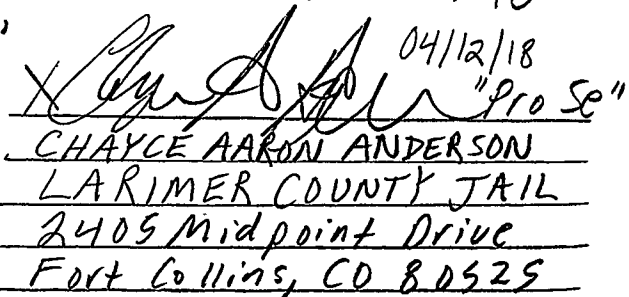 04/12/18
X "Pro Se"
CHAYCE AARON ANDERSON
LARIMER COUNTY JAIL
2405 Midpoint Drive
Fort Collins, CO 80525